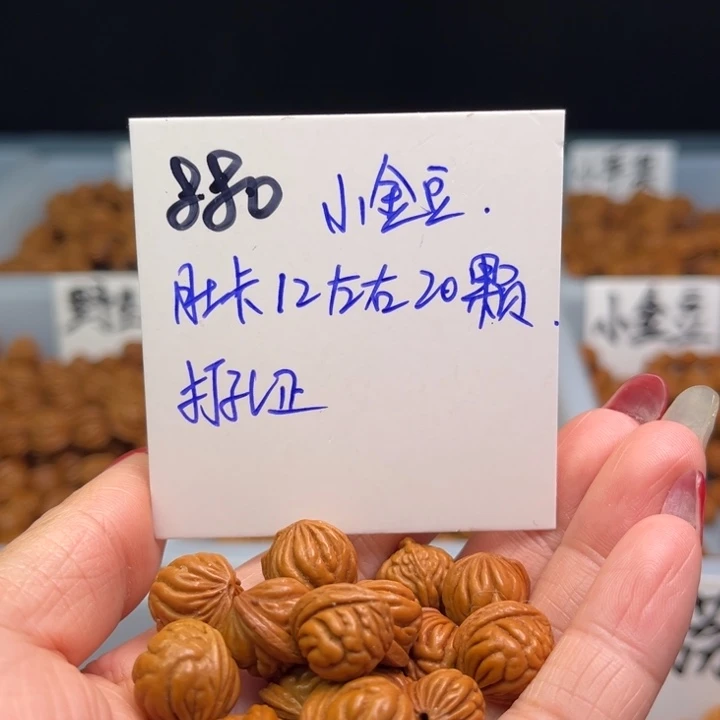 880 小金豆.
肚卡12左右20颗.
打孔正
小金豆